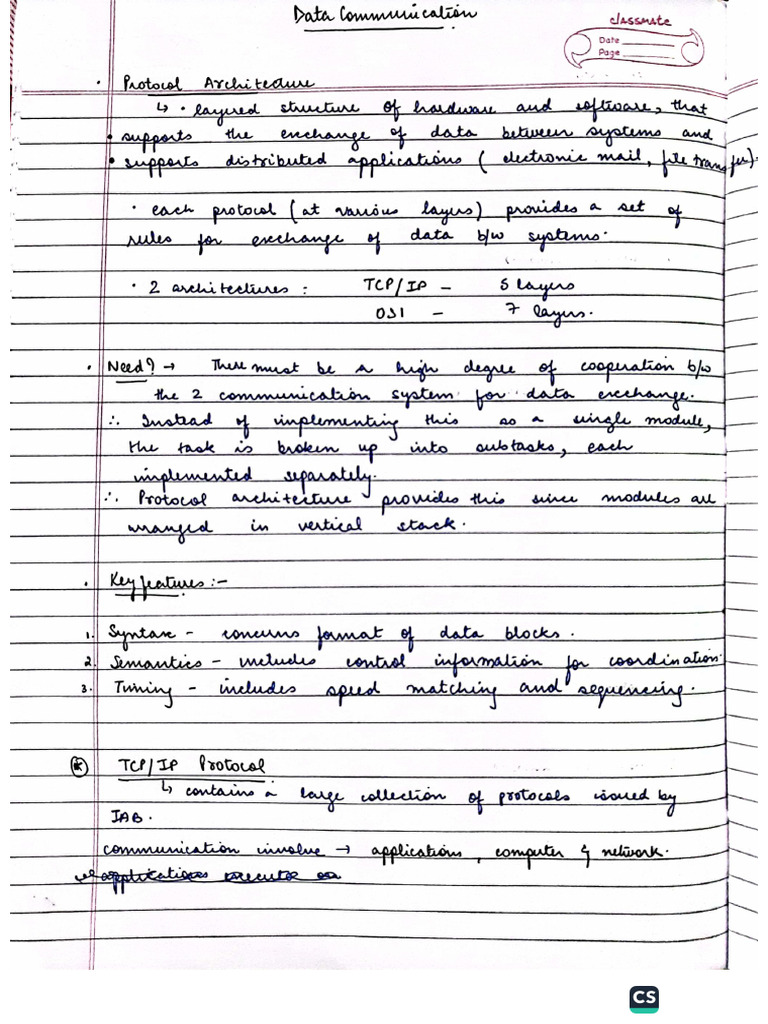 Data Communication
classmate
Date
Page
• Protocol Architecture
↳ • layered structure of hardware and software, that
• supports the exchange of data between systems and
• supports distributed applications ( electronic mail, file transfer).
• each protocol (at various layers) provides a set of
rules for exchange of data b/w systems.
• 2 architectures : TCP/IP – 5 layers
OSI – 7 layers.
• Need? → There must be a high degree of cooperation b/w
the 2 communication system for data exchange.
∴ Instead of implementing this as a single module,
the task is broken up into subtasks, each
implemented separately.
∴ Protocol architecture provides this since modules are
arranged in vertical stack.
• Key features :-
1. Syntax – concerns format of data blocks.
2. Semantics – includes control information for coordination.
3. Timing – includes speed matching and sequencing.
* TCP/IP Protocol
↳ contains a large collection of protocols issued by
IAB.
communication involve → applications, computer & network.
applications executes on
CS